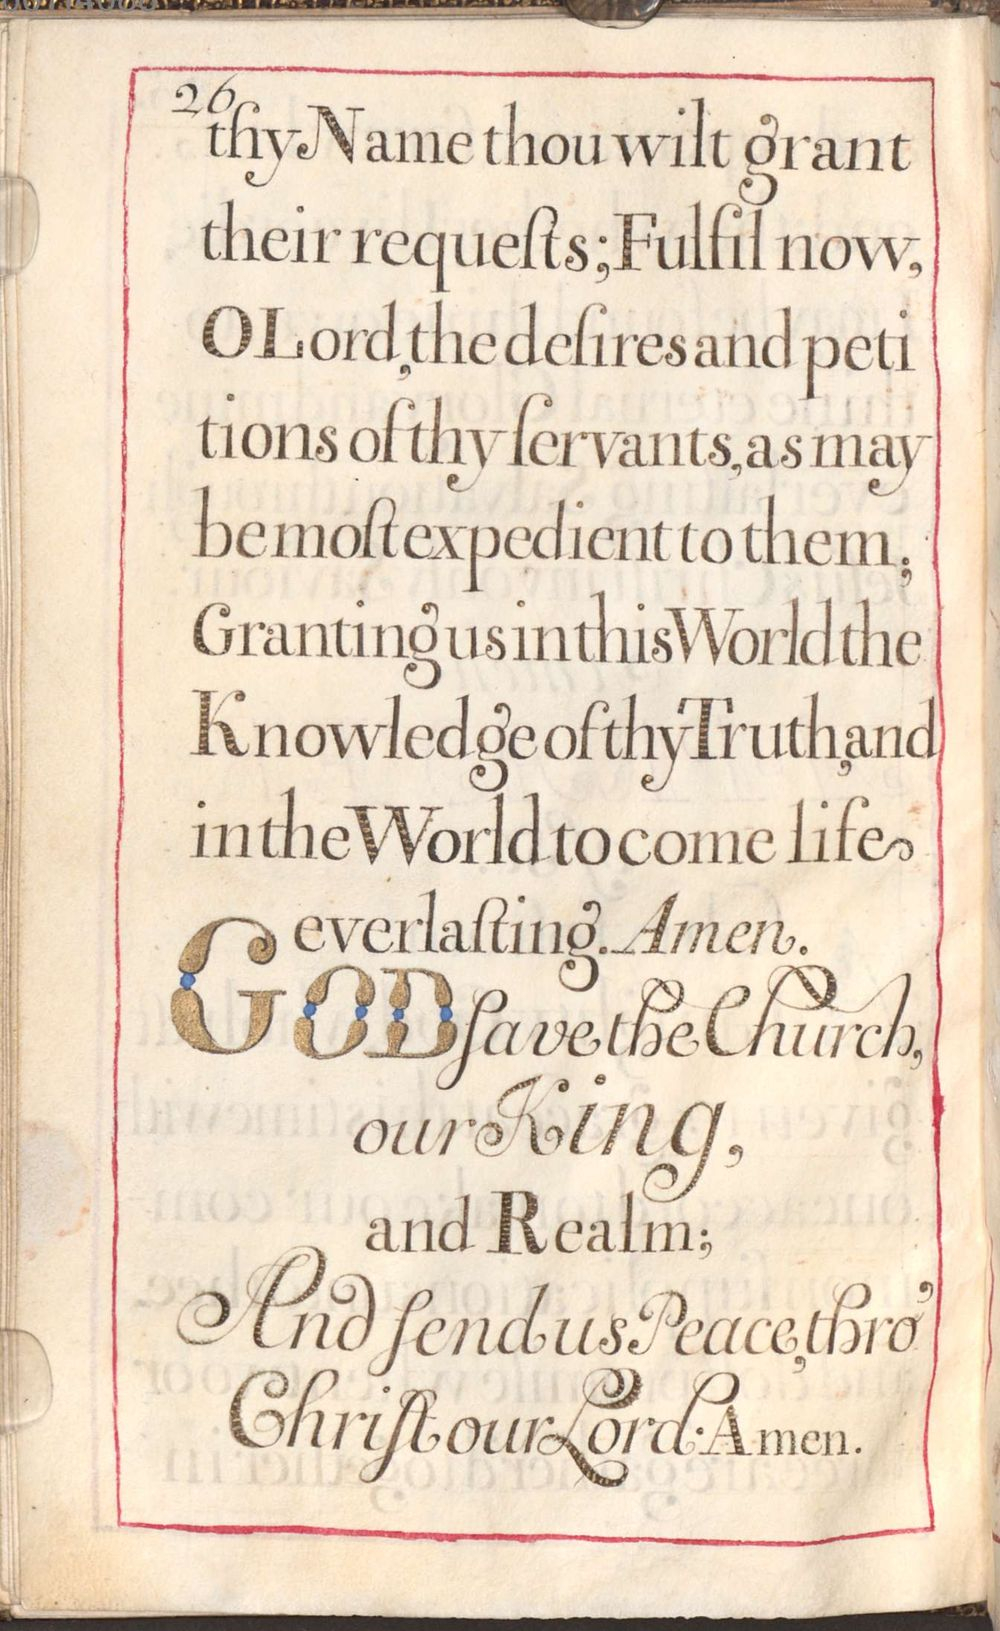 26
thy Name thou wilt grant
their requeſts; Fulfil now,
O Lord, the deſires and peti
tions of thy ſervants, as may
be moſt expedient to them;
Granting us in this World the
Knowledge of thy Truth, and
in the World to come life
everlaſting. Amen.
GOD ſave the Church,
our King,
and Realm;
And ſend us Peace, thro'
Chriſt our Lord. Amen.